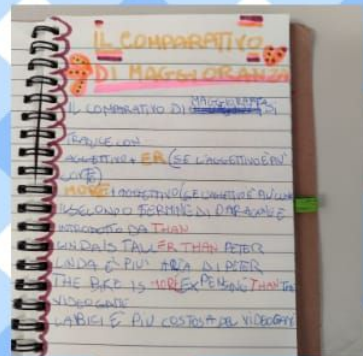 IL COMPARATIVO
DI MAGGIORANZA
IL COMPARATIVO DI MAGGIORANZA SI
CON
AGGETTIVO + ER (SE L'AGGETTIVO È PIÙ
MORE + AGGETTIVO (SE L'AGGETTIVO È PIÙ
IL SECONDO TERMINE DI PARAGONE È
INTRODOTTO DA THAN
LINDA IS TALLER THAN PETER
LINDA È PIÙ ALTA DI PETER
THE BIKE IS MORE EXPENSIVE THAN THE
VIDEOGAME
LA BICI È PIÙ COSTOSA DEL VIDEOGAME